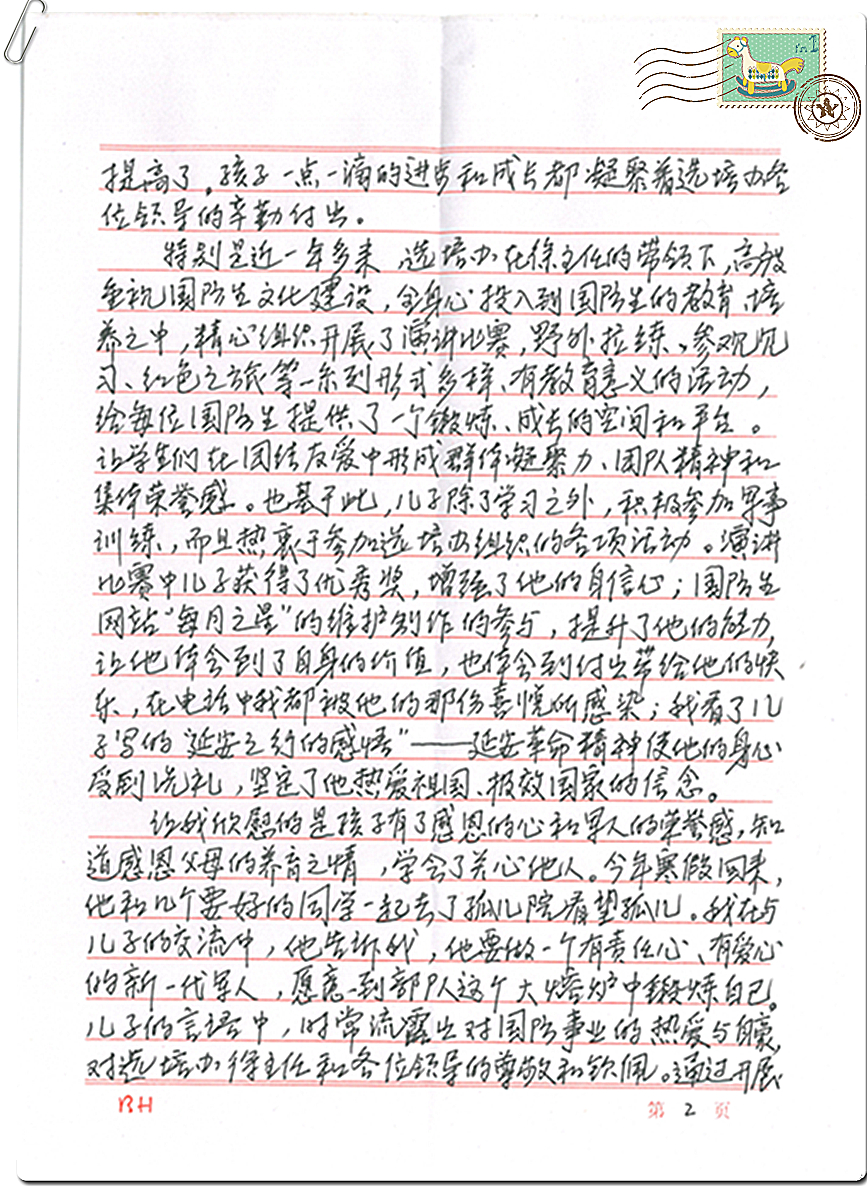 提高了。孩子一点一滴的进步和成长都凝聚着选培办各
位领导的辛勤付出。
特别是近一年多来,选培办在徐主任的带领下,高度
重视国防生文化建设,全身心投入到国防生的教育、培
养之中,精心组织开展了演讲比赛,野外拉练、参观见
习、红色之旅等一系列形式多样、有教育意义的活动,
给每位国防生提供了一个锻炼、成长的空间和平台。
让学生们在团结友爱中形成群体凝聚力、团队精神和
集体荣誉感。也基于此,儿子除了学习之外,积极参加军事
训练,而且热衷于参加选培办组织的各项活动。演讲
比赛中儿子获得了优秀奖,增强了他的自信心;国防生
网站“每月之星”的维护制作的参与,提升了他的能力,
让他体会到了自身的价值,也体会到付出带给他的快
乐,在电话中我都被他的那份喜悦所感染;我看了儿
子写的“延安之行的感悟”——延安革命精神使他的身心
受到洗礼,坚定了他热爱祖国、报效国家的信念。
让我欣慰的是孩子有了感恩的心和军人的荣誉感,知
道感恩父母的养育之情,学会了关心他人。今年寒假回来,
他和几个要好的同学一起去了孤儿院看望孤儿。我在与
儿子的交流中,他告诉我,他要做一个有责任心、有爱心
的新一代军人,愿意到部队这个大熔炉中锻炼自己。
儿子的言语中,时常流露出对国防事业的热爱与自豪,
对选培办徐主任和各位领导的尊敬和钦佩。通过开展
BH
第 2 页